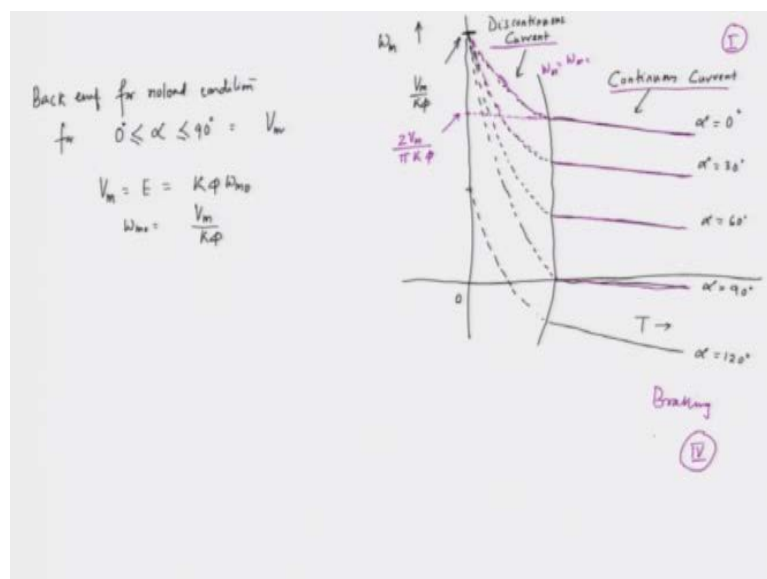 Back emf for noload condition
for 0° ≤ α ≤ 90° = Vm
Vm = E = Kφ ωmo
ωmo = Vm / Kφ
ωm ↑
Discontinuous
Current
I
Vm / Kφ
Continuous Current
2Vm / πKφ
α = 0°
α = 30°
α = 60°
0
α = 90°
T →
α = 120°
Braking
IV